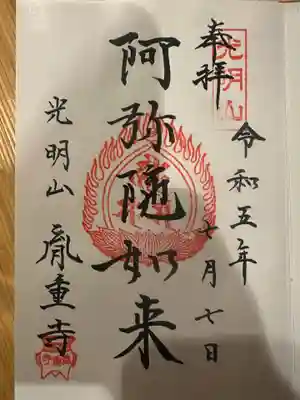 奉拝
光明山
令和五年
七月七日
阿弥陀如来
光明山
胤重寺